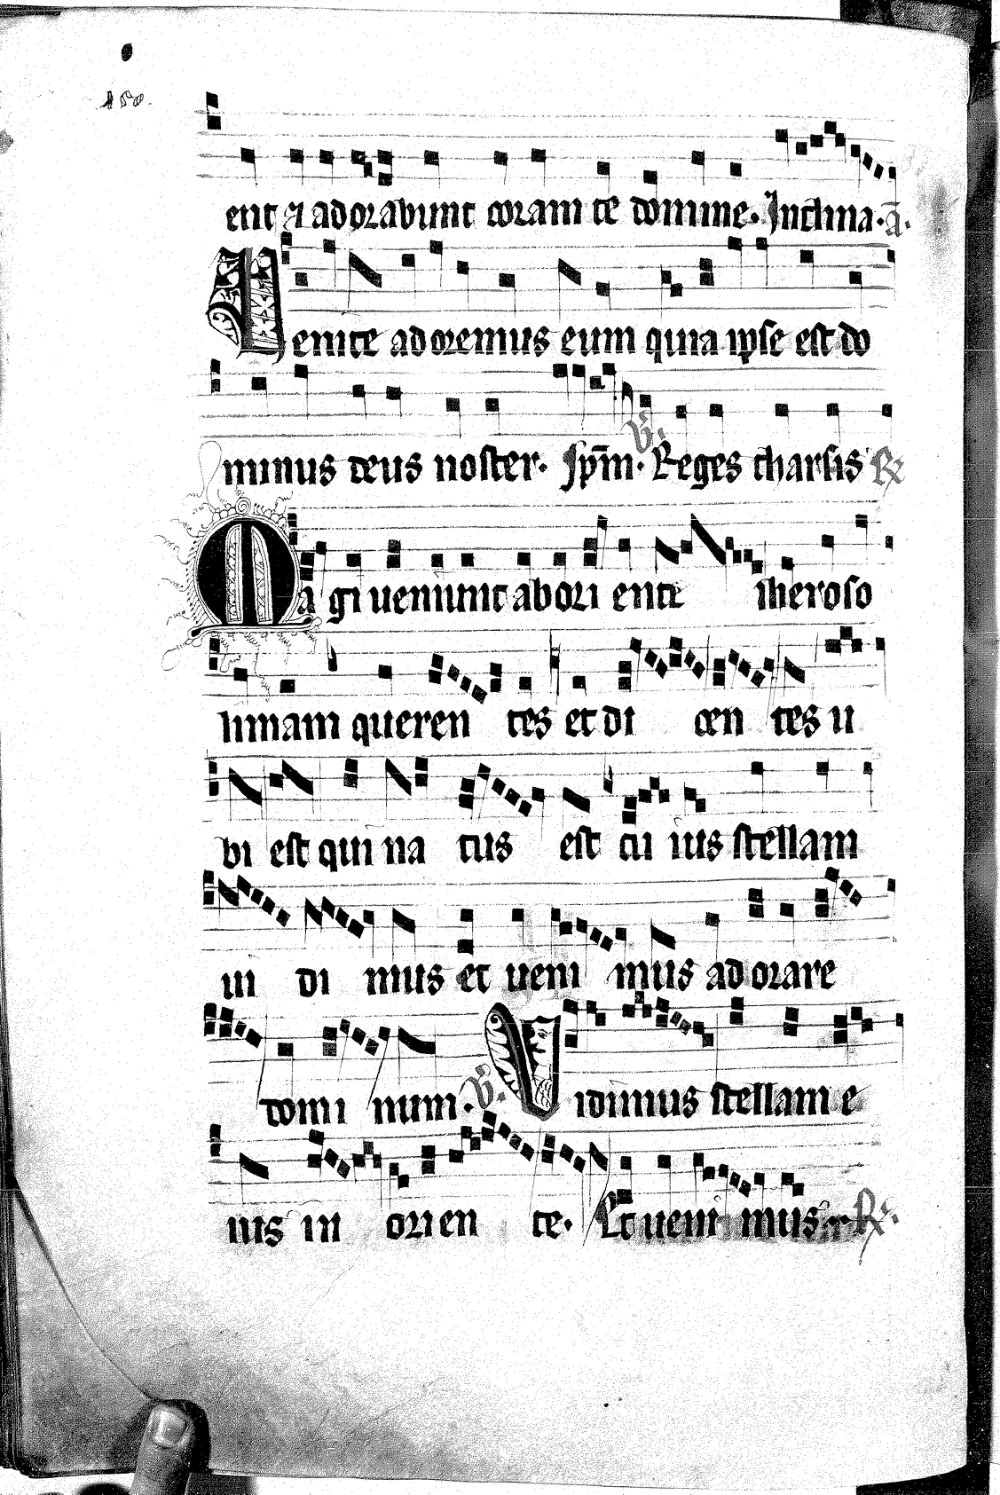 150.
ent ⁊ adorabunt coram te domine. Inclina. a̅.
Uenite adoremus eum quia ipse est do
minus deus noster. Ips̅m. V. Reges tharsis R
Magi veniunt ab ori ente iheroso
limam queren tes et di cen tes u
bi est qui na tus est cu ius stellam
ui di mus et veni mus adorare
domi num. V. Vidimus stellam e
ius in ori en te. Et veni mus R.